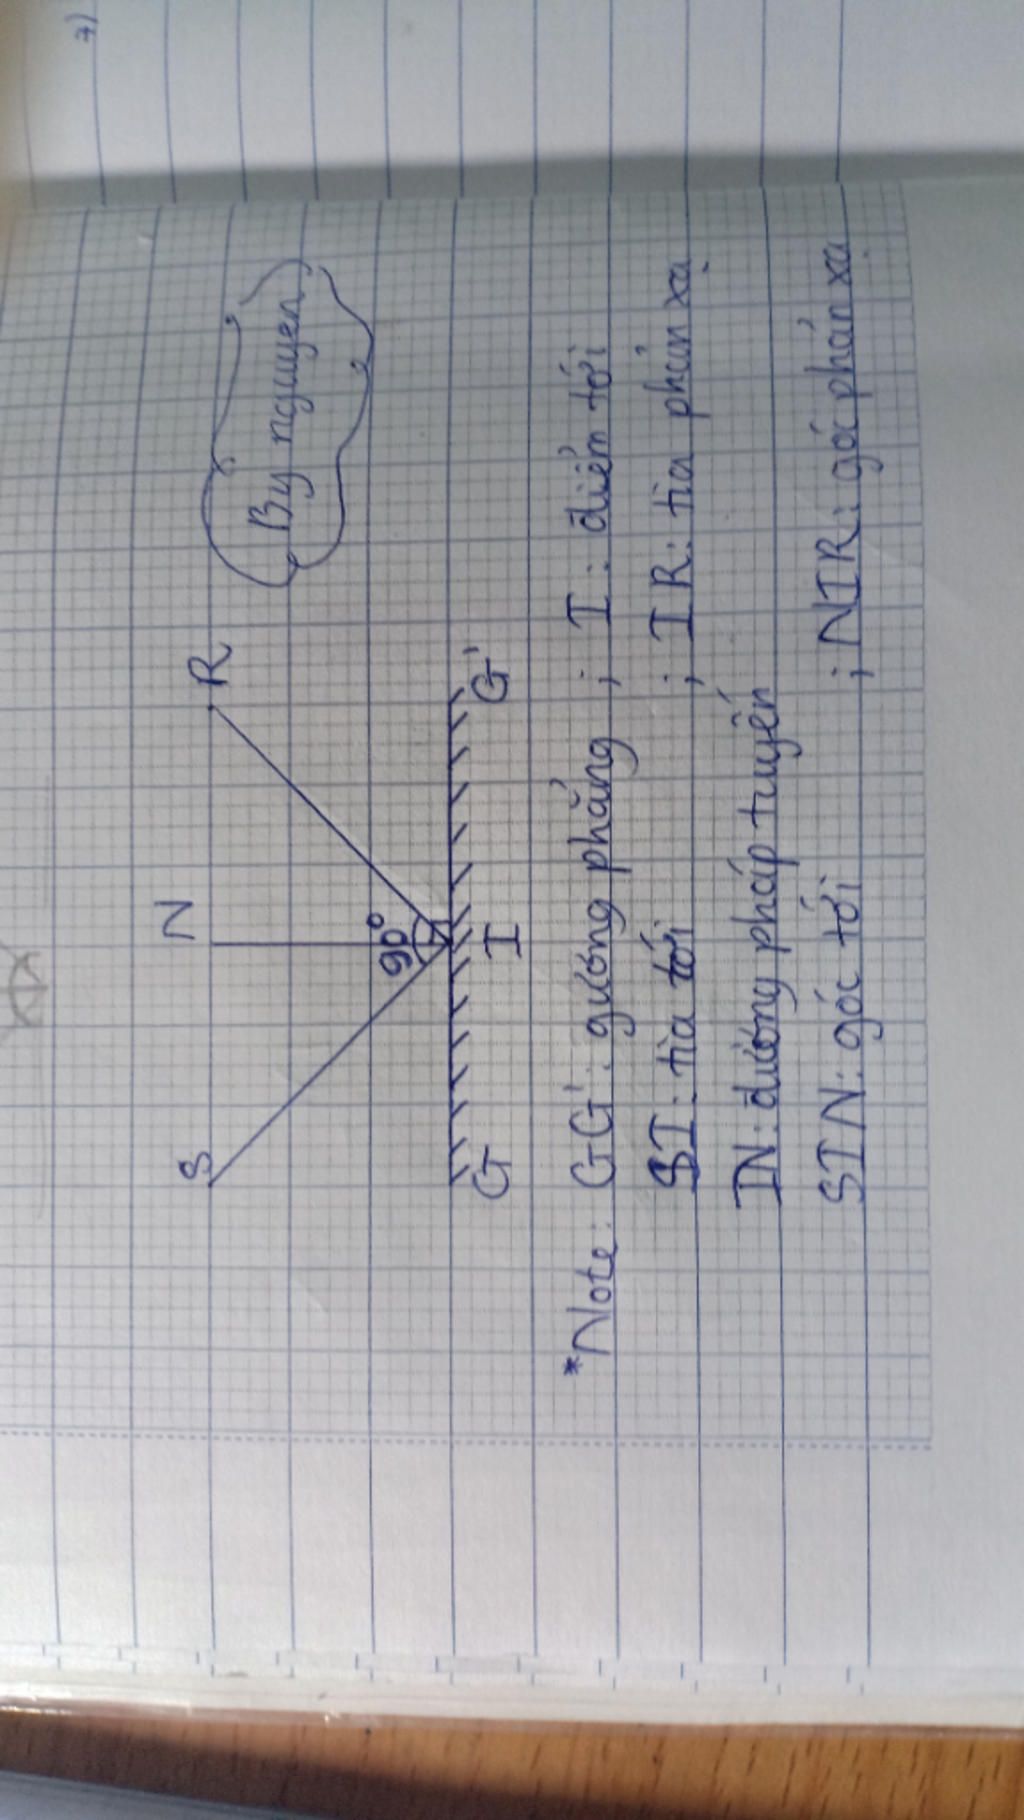 7)
By nguyen
S N R
90°
G I G'
*Note: GG': gương phẳng ; I: điểm tới
SI: tia tới ; IR: tia phản xạ
IN: đường pháp tuyến
SIN: góc tới ; NIR: góc phản xạ